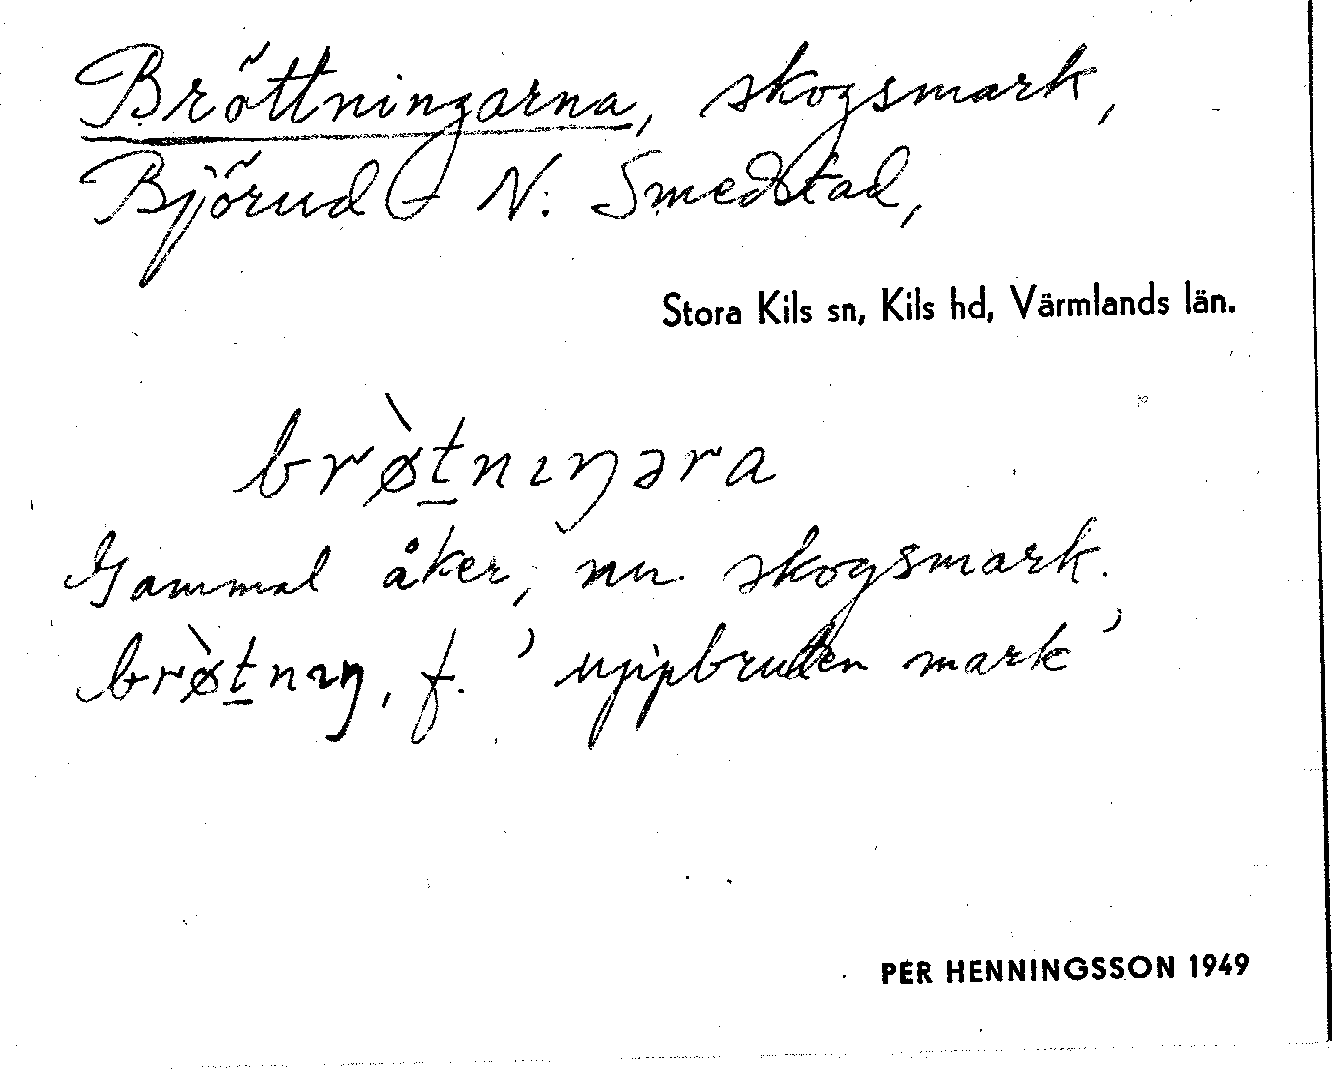 Bröttningarna, skogsmark,
Björud o N. Smedstad,
Stora Kils sn, Kils hd, Värmlands län.
brø̀t̲nıŋəra
Gammal åker, nu skogsmark.
brø̀t̲nıŋ, f. 'uppbruten mark'
PER HENNINGSSON 1949